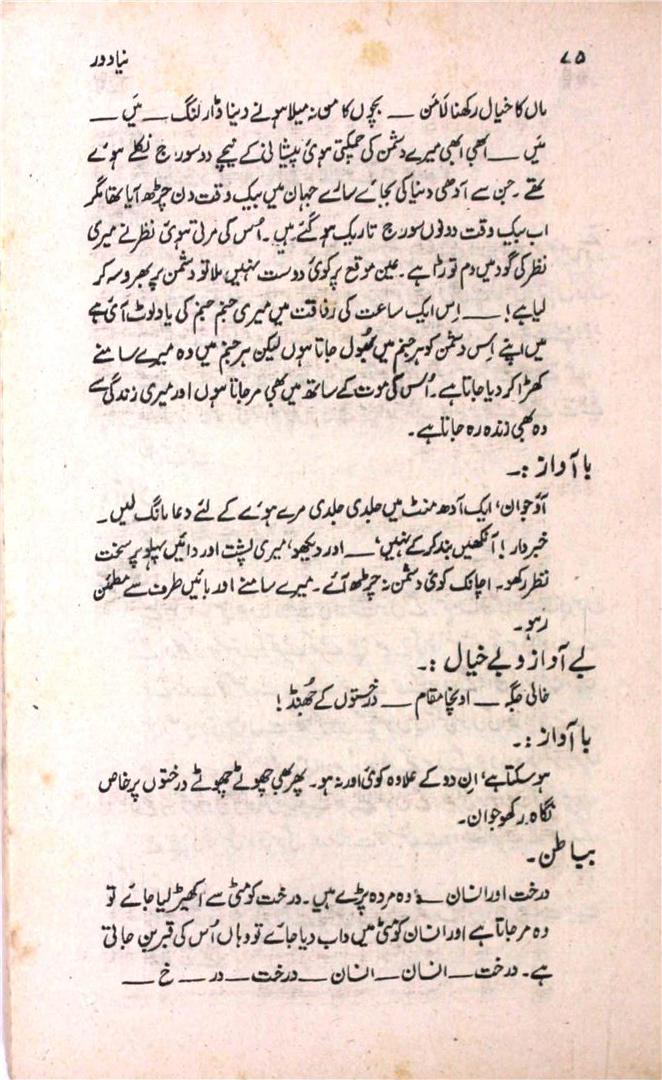 ۷۵ نیا دور
ماں کا خیال رکھنا لَامَن — بچوں کا من نہ میلا ہونے دینا ڈارلنگ — مَیں —
مَیں — ابھی ابھی میرے دشمن کی چمکتی ہوئی پیشانی کے نیچے دو سورج نکلے ہوئے
تھے ۔ جن سے آدھی دنیا کی بجائے سالے جہان میں بیک وقت دن چڑھ آیا تھا مگر
اب بیک وقت دونوں سورج تاریک ہو گئے ہیں ۔ اُس کی مرتی ہوئی نظر نے میری
نظر کی گود میں دم توڑا ہے ۔ عین موقع پر کوئی دوست نہیں ملا تو دشمن پر بھروسہ کر
لیا ہے! — اِس ایک ساعت کی رفاقت میں میری جنم جنم کی یاد لوٹ آئی ہے
میں اپنے اِس دشمن کو ہر جنم میں بُھول جاتا ہوں لیکن ہر جنم میں وہ میرے سامنے
کھڑا کر دیا جاتا ہے ۔ اُس کی موت کے ساتھ میں بھی مر جاتا ہوں اور میری زندگی سے
وہ بھی زندہ رہ جاتا ہے ۔
با آواز :۔
آؤ جوان، ایک آدھ منٹ میں جلدی جلدی مرے ہوئے کے لئے دعا مانگ لیں ۔
خبردار! آنکھیں بند کر کے نہیں، — اور دیکھو، میری پشت اور دائیں پہلو پر سخت
نظر رکھو ۔ اچانک کوئی دشمن نہ چڑھ آئے ۔ میرے سامنے اور بائیں طرف سے مطمئن
رہو ۔
بے آواز و بے خیال :۔
خالی جگہ — اونچا مقام — درختوں کے جُھنڈ!
با آواز :۔
ہو سکتا ہے، اِن دو کے علاوہ کوئی اور نہ ہو ۔ پھر بھی چھوٹے چھوٹے درختوں پر خاص
نگاہ رکھو جوان ۔
بباطن ۔
درخت اور انسان — وہ مردہ پڑے ہیں ۔ درخت کو مٹی سے اکھیڑ لیا جائے تو
وہ مر جاتا ہے اور انسان کو مٹی میں داب دیا جائے تو وہاں اُس کی قبر بن جاتی
ہے ۔ درخت — انسان — انسان — درخت — در — خ —